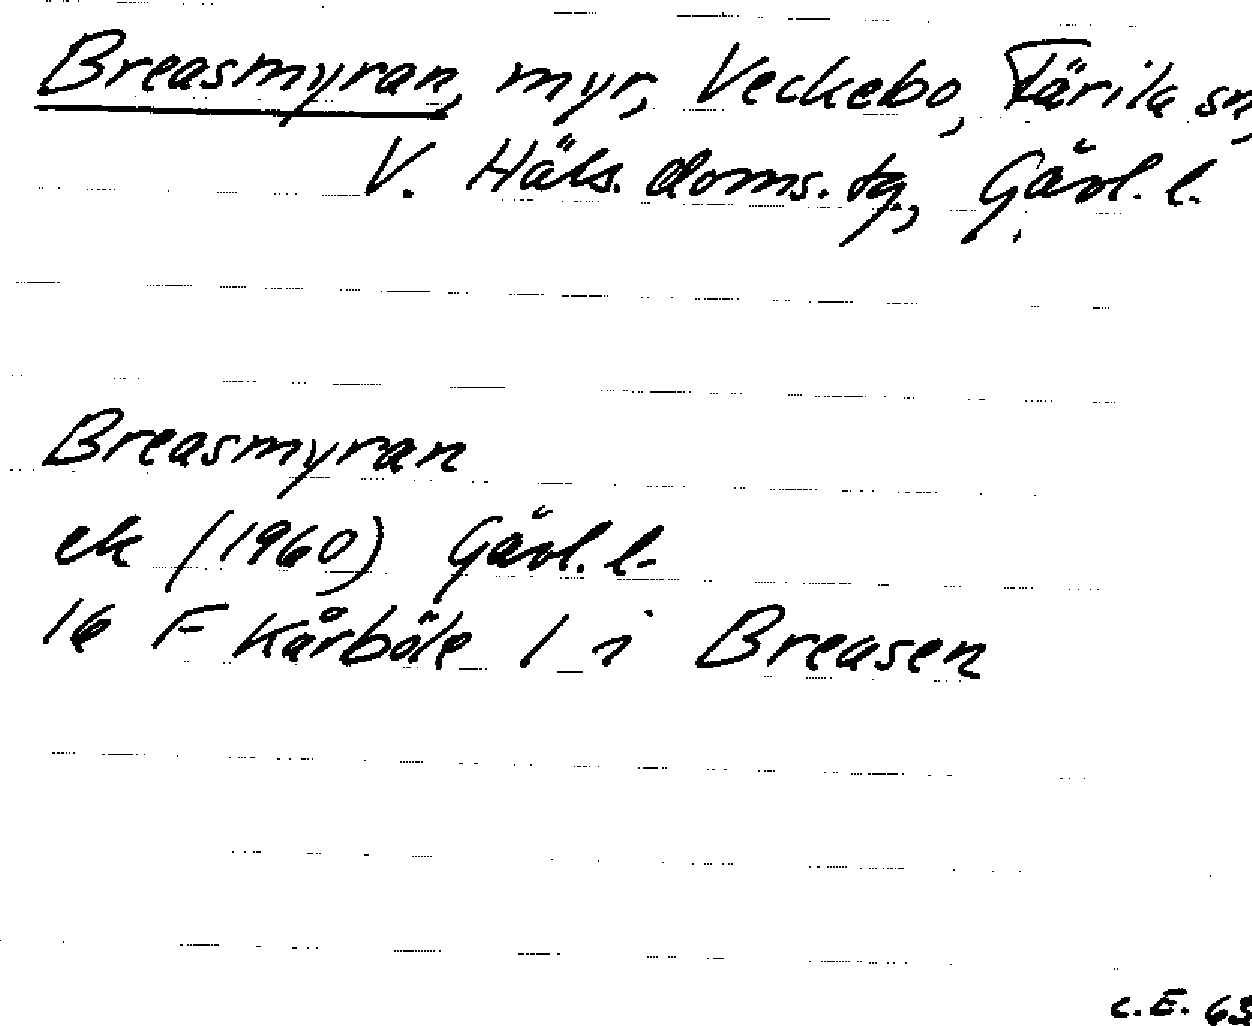 Breasmyran, myr, Veckebo, Färila sn,
V. Häls. doms. tg., Gävl. l.
Breasmyran
ek (1960) Gävl. l.
16 F Kårböle 1 i Breasen
C.E. 63